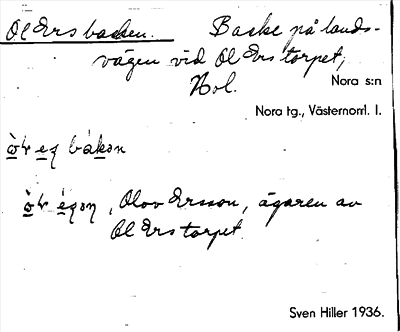 Ol Ersbacken. Backe på lands-
vägen vid Ol Erstorpet,
Hol.
Nora s:n
Nora tg., Västernorrl. l.
Olov Ersson, ägaren av
Ol Erstorpet.
Sven Hiller 1936.